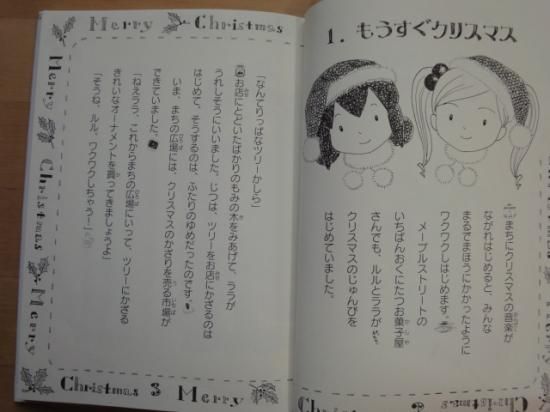 1. もうすぐクリスマス
まちにクリスマスの音楽が
ながれはじめると、みんな
まるでまほうにかかったように
ワクワクしはじめます。
メープルストリートの
いちばんおくにたつお菓子屋
さんでも、ルルとララが
クリスマスのじゅんびを
はじめていました。
「なんてりっぱなツリーかしら」
お店にとどいたばかりのもみの木をみあげて、ララが
うれしそうにいいました。じつは、ツリーをお店にかざるのは
はじめて。そうするのは、ふたりのゆめだったのです。
いま、まちの広場には、クリスマスのかざりを売る市場が
できていました。
「ねえララ、これからまちの広場にいって、ツリーにかざる
きれいなオーナメントを買ってきましょうよ」
「そうね、ルル、ワクワクしちゃう！」
Merry Christmas
Merry Christmas Merry
Christmas 3 Merry
2 Christmas